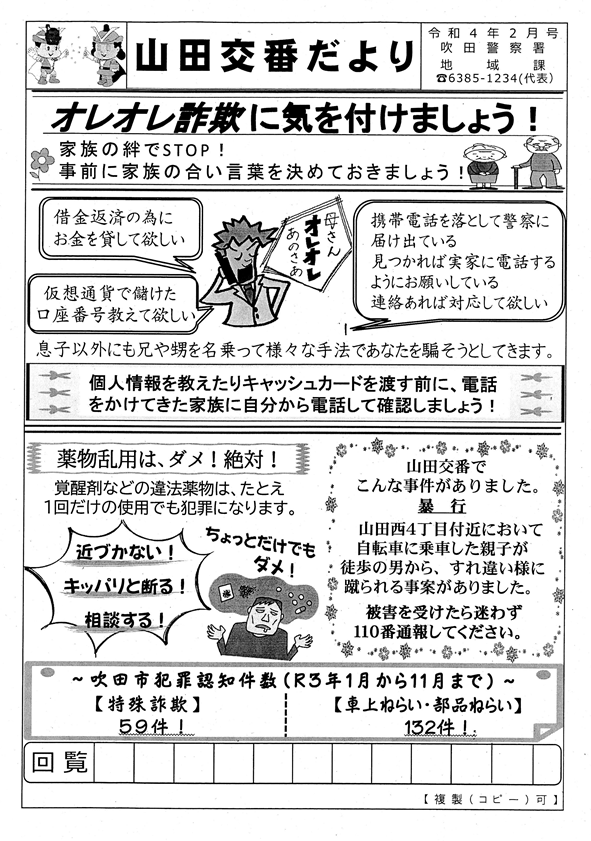 山田交番だより
令和4年2月号
吹田警察署
地域課
☎6385-1234(代表)
オレオレ詐欺に気を付けましょう！
家族の絆でSTOP！
事前に家族の合い言葉を決めておきましょう！
借金返済の為に
お金を貸して欲しい
仮想通貨で儲けた
口座番号教えて欲しい
母さん
オレオレ
あのさぁ
携帯電話を落として警察に
届け出ている
見つかれば実家に電話する
ようにお願いしている
連絡あれば対応して欲しい
息子以外にも兄や甥を名乗って様々な手法であなたを騙そうとしてきます。
個人情報を教えたりキャッシュカードを渡す前に、電話
をかけてきた家族に自分から電話して確認しましょう！
薬物乱用は、ダメ！絶対！
覚醒剤などの違法薬物は、たとえ
1回だけの使用でも犯罪になります。
近づかない！
キッパリと断る！
相談する！
ちょっとだけでも
ダメ！
山田交番で
こんな事件がありました。
暴 行
山田西4丁目付近において
自転車に乗車した親子が
徒歩の男から、すれ違い様に
蹴られる事案がありました。
被害を受けたら迷わず
110番通報してください。
～吹田市犯罪認知件数(R3年1月から11月まで)～
【特殊詐欺】
59件！
【車上ねらい・部品ねらい】
132件！
回覧
【複製(コピー)可】